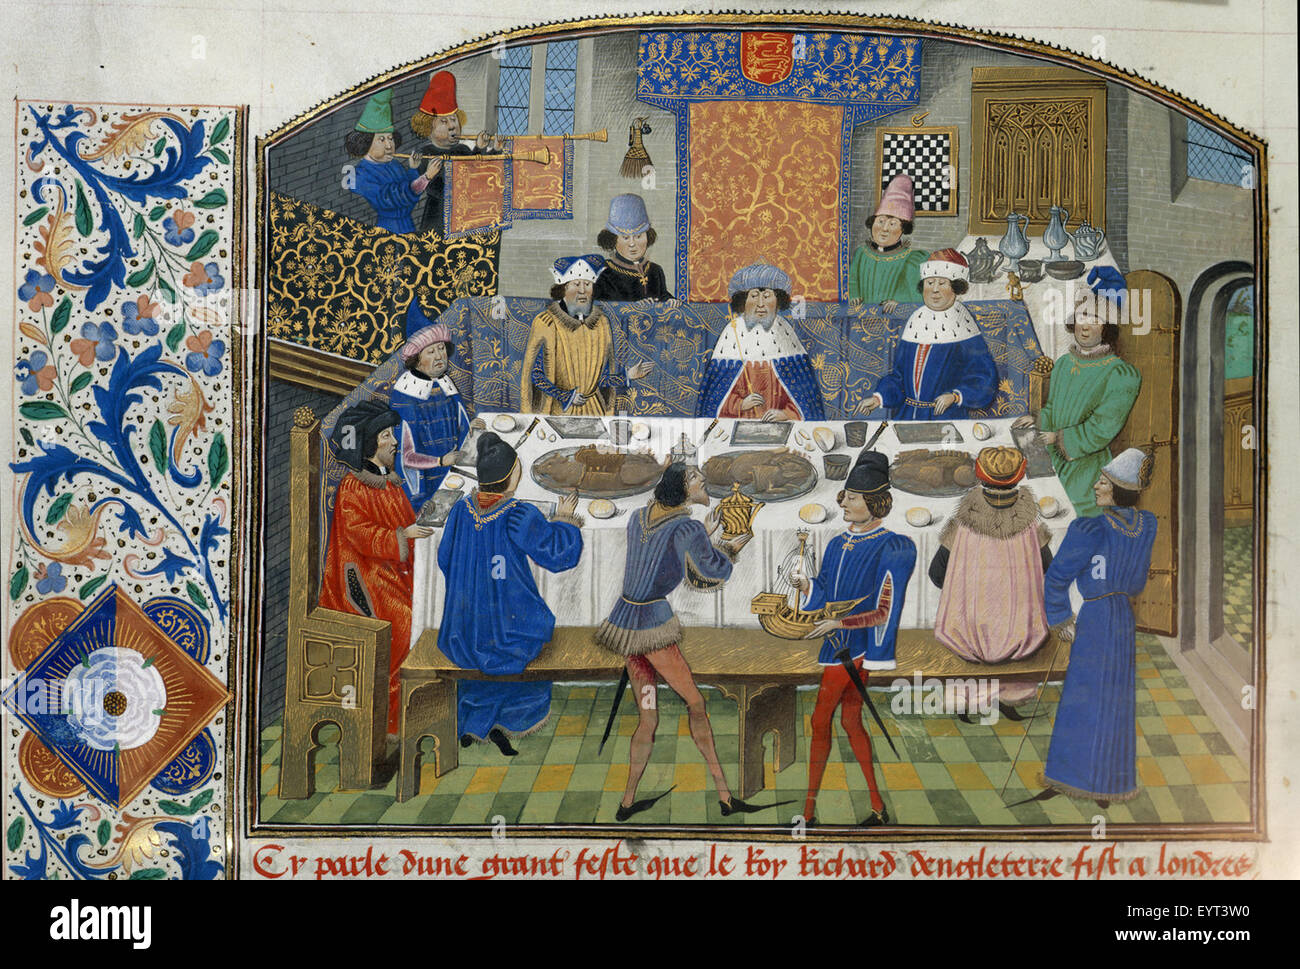 Cy parle dune grant feste que le Roy Richard dengleterre fist a londres
alamy
Image ID: EYT3W0
www.alamy.com